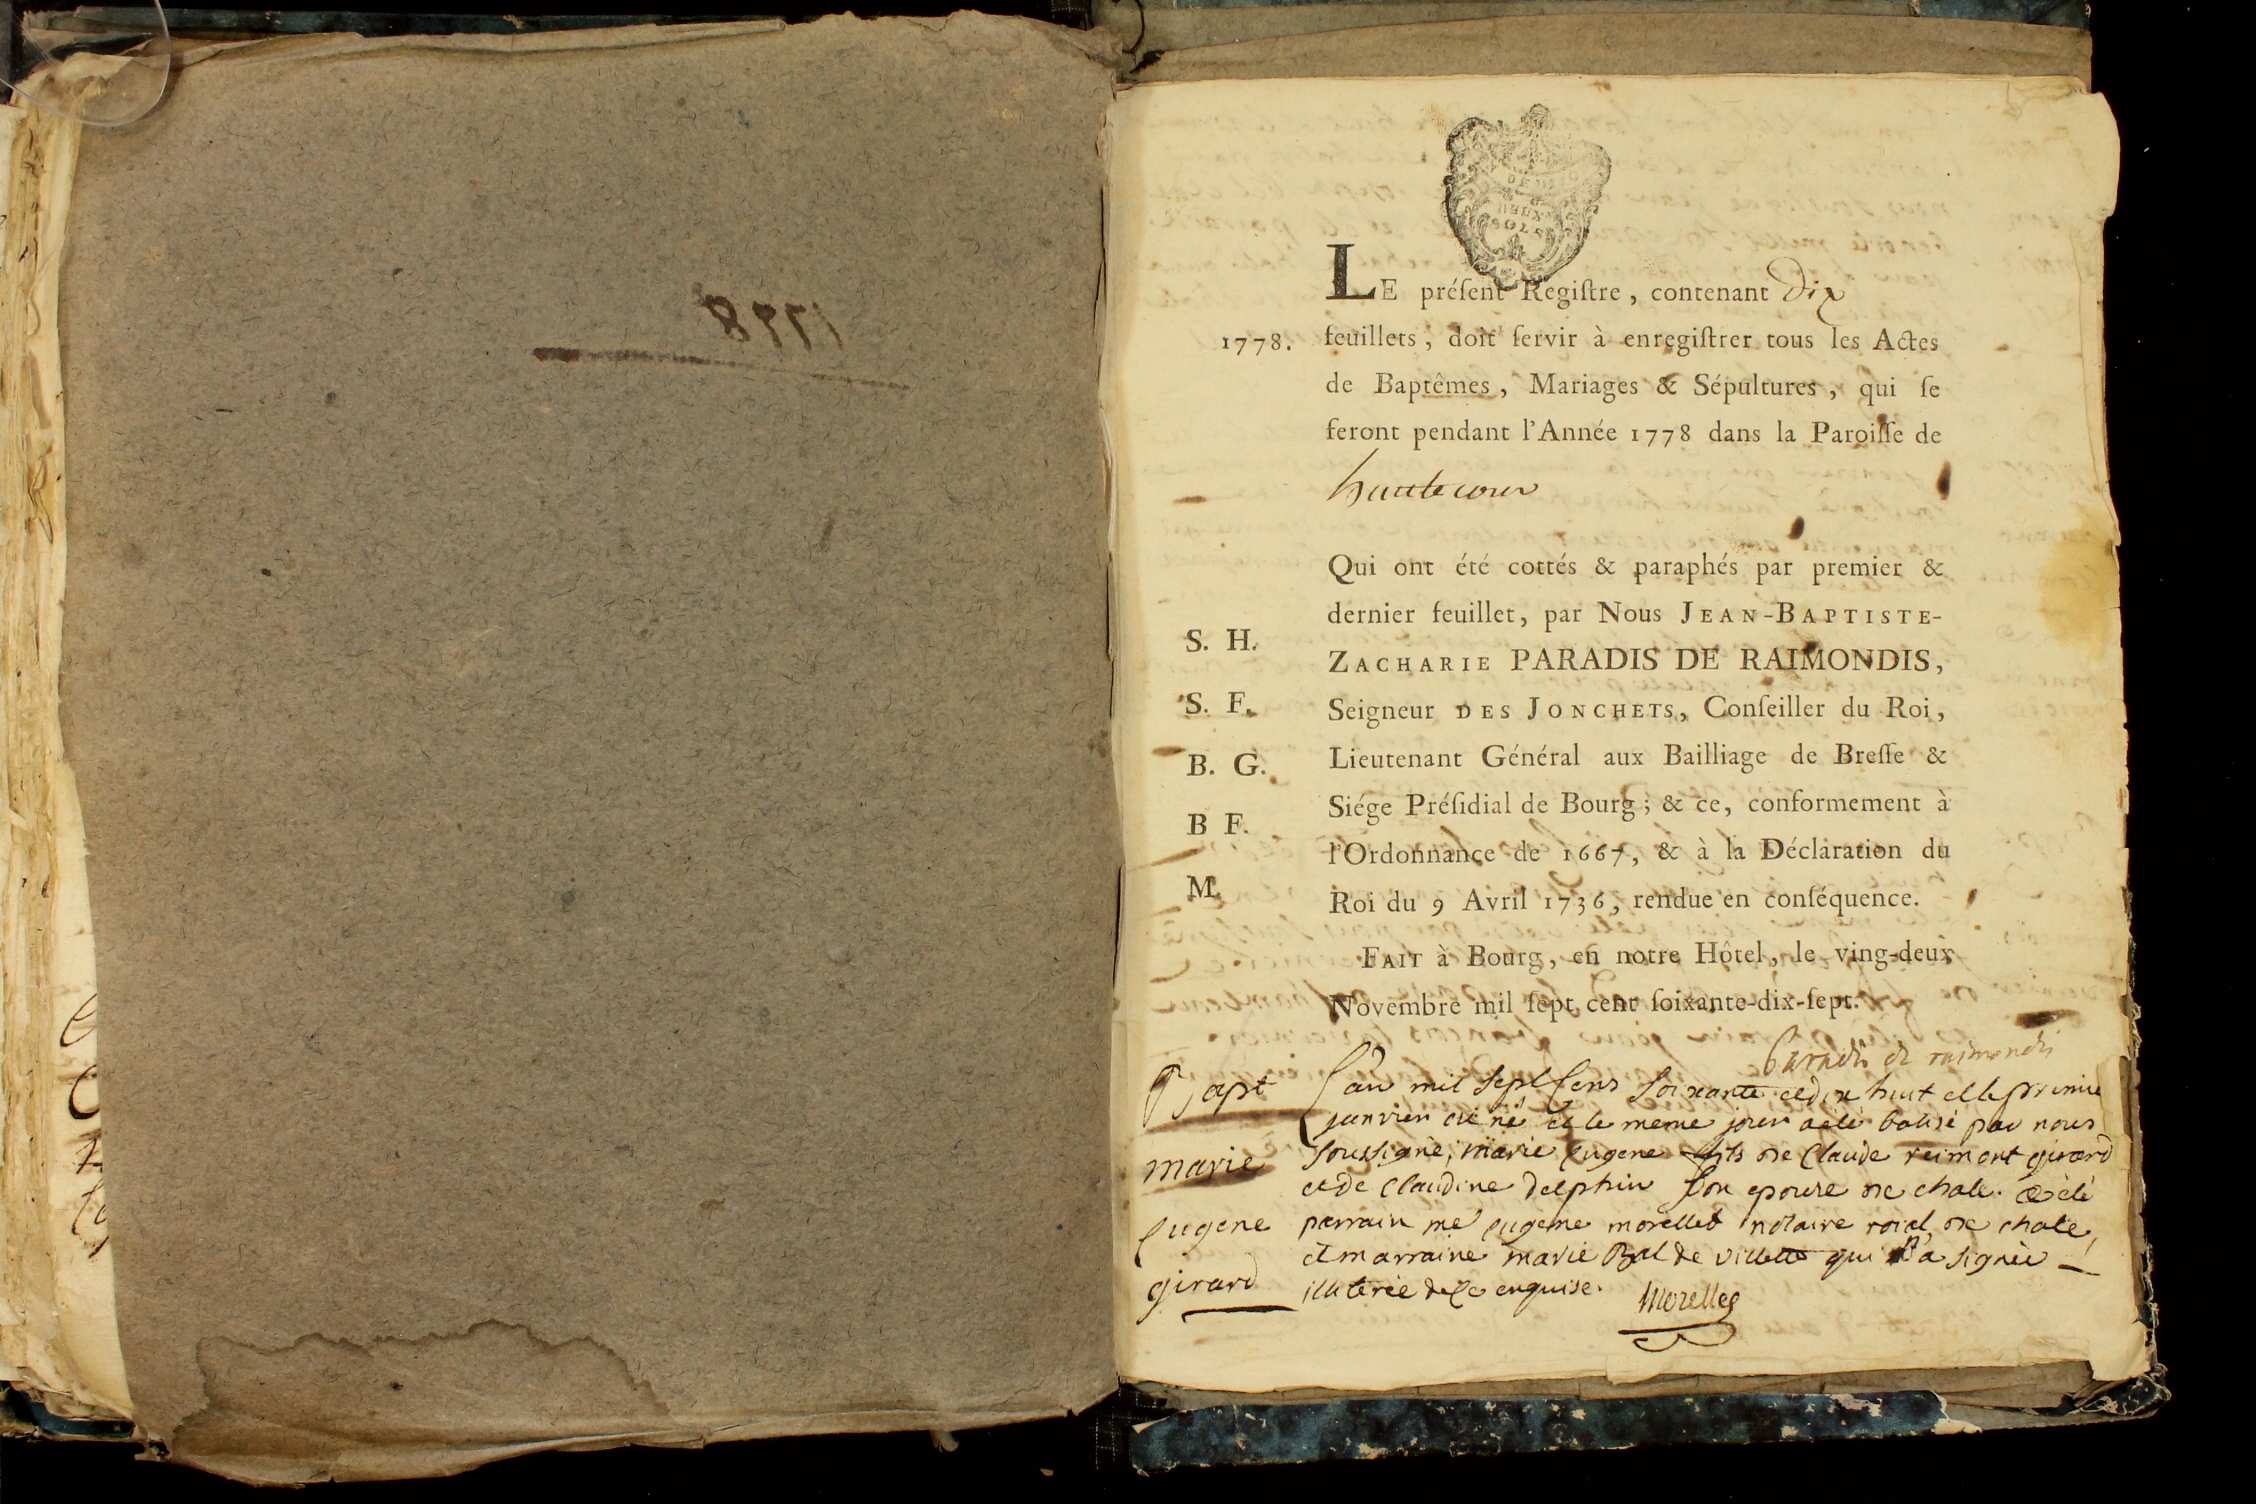 1778
DEUX
SOLS
LE préſent Regiſtre, contenant Dix
1778. feuillets, doit ſervir à enregiſtrer tous les Actes
de Baptêmes, Mariages & Sépultures, qui ſe
feront pendant l'Année 1778 dans la Paroiſſe de
hautecour
Qui ont été cottés & paraphés par premier &
dernier feuillet, par Nous JEAN-BAPTISTE-
S. H.
ZACHARIE PARADIS DE RAIMONDIS,
S. F.
Seigneur DES JONCHETS, Conſeiller du Roi,
B. G.
Lieutenant Général aux Bailliage de Breſſe &
Siége Préſidial de Bourg; & ce, conformement à
B F.
l'Ordonnance de 1667, & à la Déclaration du
M.
Roi du 9 Avril 1736, rendue en conſéquence.
FAIT à Bourg, en notre Hôtel, le ving-deux
Novembre mil ſept cent ſoixante-dix-ſept.
Paradis de raimondis
Bapt
marie
eugene
girard
L'an mil sept Cens soixante et dix huit et le premier
janvier est né et le meme jour a été batisé par nous
soussigné, marie eugene fils de Claude reimont girard
et de Claudine delphin son epouse de chale. a été
parrain me eugene morellet notaire roial de chale,
et marraine marie Bal de villette qui n'a signée
illiterée de ce enquise.
Morellet